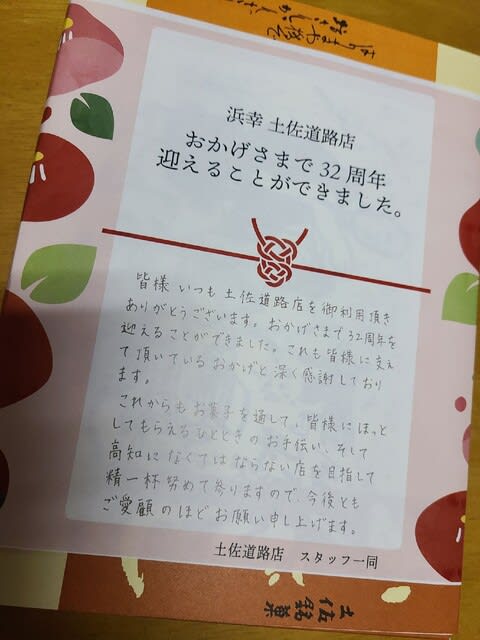 はりまや橋で
浜幸 土佐道路店
おかげさまで32周年
迎えることができました。
皆様 いつも 土佐道路店を御利用頂き
ありがとうございます。おかげさまで32周年を
迎えることができました。これも皆様に支え
て頂いている おかげと深く感謝しており
ます。
これからも お菓子を通して、皆様にほっと
してもらえるひとときのお手伝い、そして
高知に なくてはならない店を目指して
精一杯努めて参りますので、今後とも
ご愛顧のほどお願い申し上げます。
土佐道路店 スタッフ一同
土佐銘菓